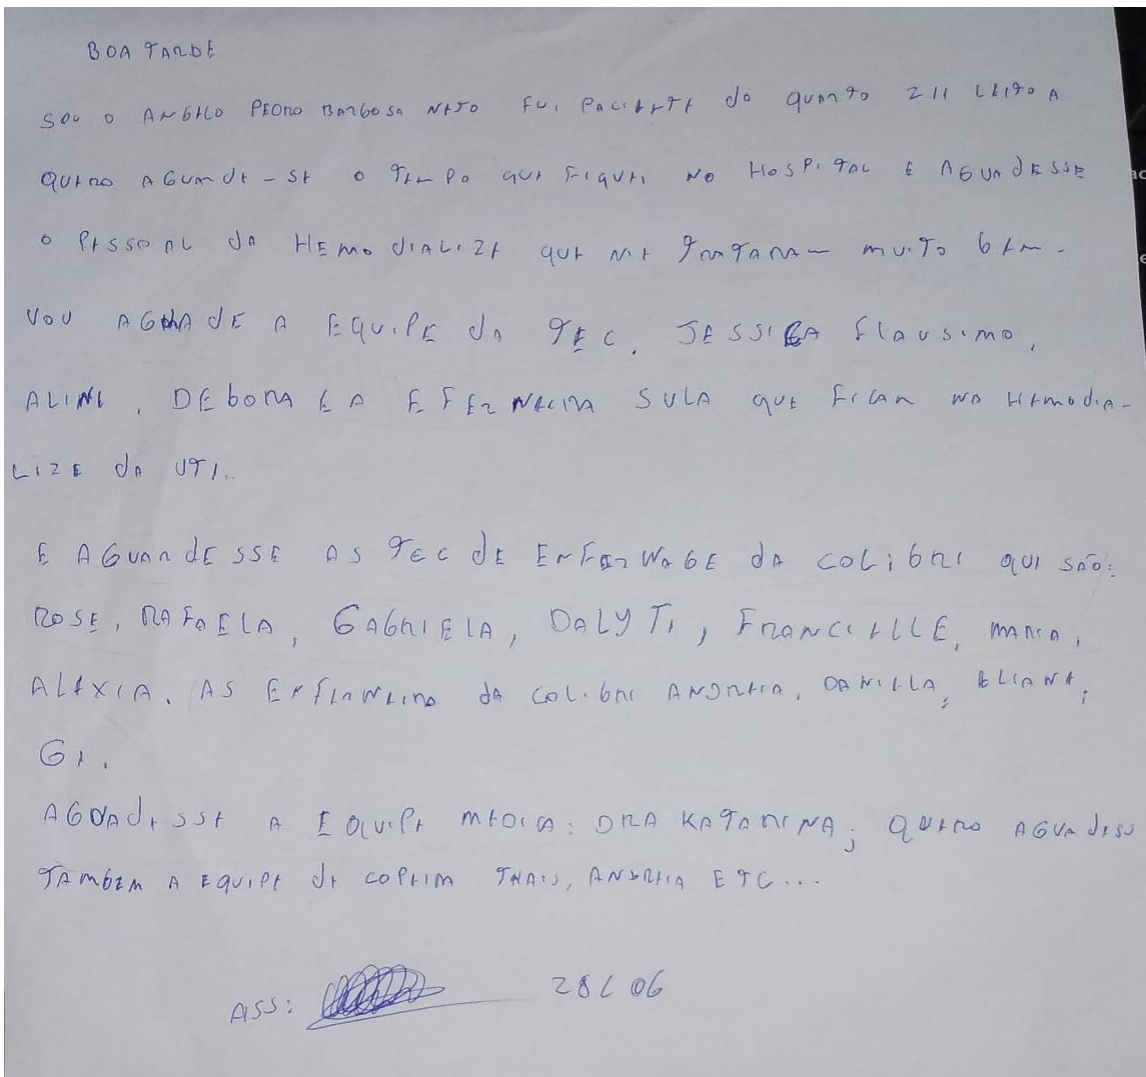 BOA TARDE
SOU O ANGELO PEDRO BARBOSA NETO FUI PACIENTE do QUARTO 211 LEITO A
QUERO AGUARDE-SE O TEMPO QUE FIQUEI NO HOSPITAL E AGUADESSE
O PESSOAL DA HEMODIALIZE QUE ME TRATARAM MUITO BEM.
VOU AGUADE A EQUIPE DA TEC. JESSICA FLAUSIMO,
ALINE, DEBORA E A EFERNEEIRA SULA QUE FICAM NA HEMODIA-
LIZE DA UTI..
E AGUARDESSE AS TEC DE ENFERNAGE DA COLIBRI QUI SÃO:
ROSE, RAFAELA, GABRIELA, DALYTI, FRANCIELLE, MARIA,
ALEXIA. AS DA COLIBRI ANDREIA, DANIELLA, ELIANE,
GI.
AGUADESSE A EQUIPE MEDICA: DRA KATARINA; QUERO
TAMBEM A EQUIPE DE COPEIRA THAIS, ANDREIA ETC...
ASS: 28/06